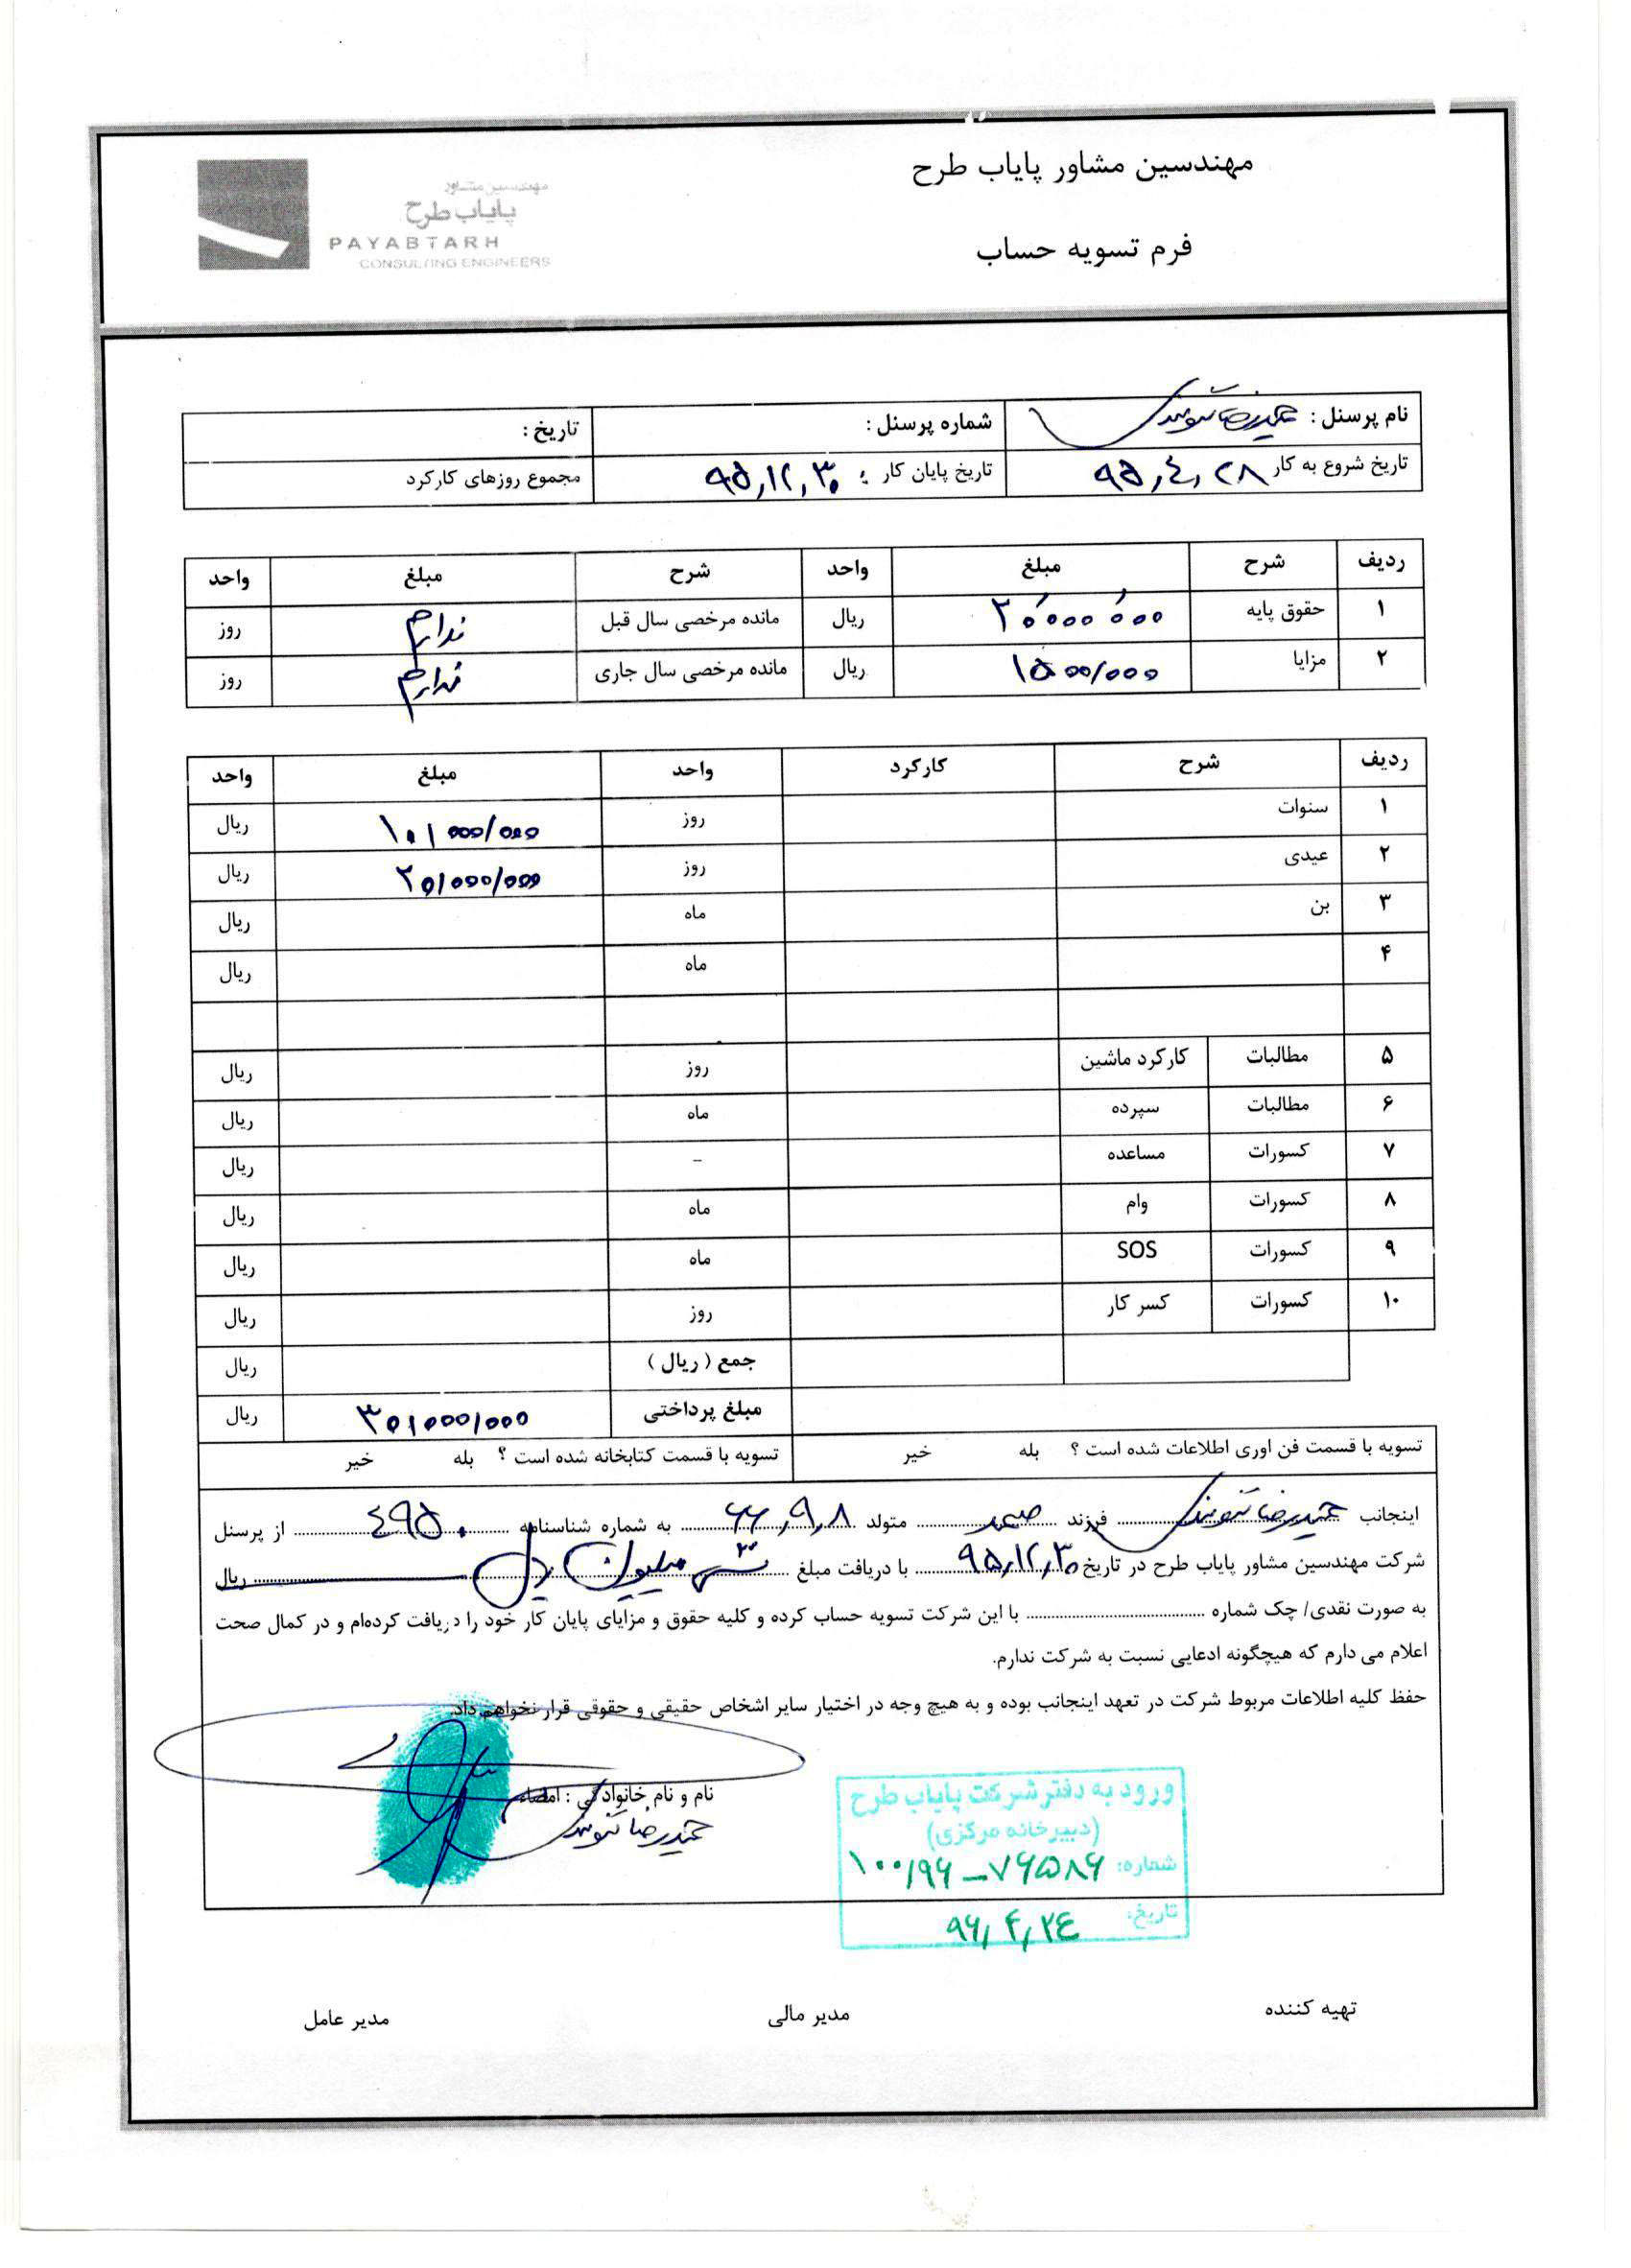 مهندسین مشاور پایاب طرح
فرم تسویه حساب
مهندسین مشاور
پایاب طرح
PAYABTARH
CONSULTING ENGINEERS
نام پرسنل : حمیدرضا شماره پرسنل : تاریخ :
تاریخ شروع به کار ۹۵,٤,۲۸ تاریخ پایان کار : ۹۵,۱۲,۳۰ مجموع روزهای کارکرد
ردیف شرح مبلغ واحد شرح مبلغ واحد
۱ حقوق پایه ۲۰٬۰۰۰٬۰۰۰ ریال مانده مرخصی سال قبل ندارم روز
۲ مزایا ۱۵۰۰/۰۰۰ ریال مانده مرخصی سال جاری ندارم روز
ردیف شرح کارکرد واحد مبلغ واحد
۱ سنوات روز ۱۰/۰۰۰/۰۰۰ ریال
۲ عیدی روز ۲۰/۰۰۰/۰۰۰ ریال
۳ بن ماه ریال
۴ ماه ریال
۵ مطالبات کارکرد ماشین روز ریال
۶ مطالبات سپرده ماه ریال
۷ کسورات مساعده – ریال
۸ کسورات وام ماه ریال
۹ کسورات SOS ماه ریال
۱۰ کسورات کسر کار روز ریال
جمع ( ریال ) ریال
مبلغ پرداختی ۳۰/۰۰۰/۰۰۰ ریال
تسویه با قسمت فن اوری اطلاعات شده است ؟ بله خیر تسویه با قسمت کتابخانه شده است ؟ بله خیر
اینجانب حمیدرضا فرزند صمد متولد ۶۶,۹,۸ به شماره شناسنامه ٤۹۵۰ از پرسنل
شرکت مهندسین مشاور پایاب طرح در تاریخ ۹۵,۱۲,۳۰ با دریافت مبلغ سی میلیون ریال ریال
به صورت نقدی/ چک شماره با این شرکت تسویه حساب کرده و کلیه حقوق و مزایای پایان کار خود را دریافت کرده‌ام و در کمال صحت
اعلام می دارم که هیچگونه ادعایی نسبت به شرکت ندارم.
حفظ کلیه اطلاعات مربوط شرکت در تعهد اینجانب بوده و به هیچ وجه در اختیار سایر اشخاص حقیقی و حقوقی قرار نخواهم داد.
نام و نام خانوادگی : امضاء
حمیدرضا
ورود به دفتر شرکت پایاب طرح
(دبیرخانه مرکزی)
شماره: ۱۰۰/۹۶–۷۶۵۸۶
تاریخ: ۹۶,۴,۲٤
تهیه کننده مدیر مالی مدیر عامل